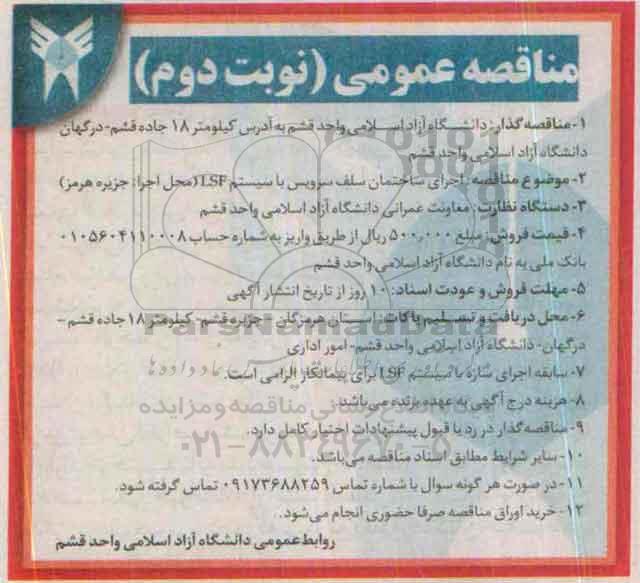 مناقصه عمومی (نوبت دوم)
۱- مناقصه گذار: دانشگاه آزاد اسلامی واحد قشم به آدرس کیلومتر ۱۸ جاده قشم- درگهان
دانشگاه آزاد اسلامی واحد قشم
۲- موضوع مناقصه: اجرای ساختمان سلف سرویس با سیستم LSF (محل اجرا: جزیره هرمز)
۳- دستگاه نظارت: معاونت عمرانی دانشگاه آزاد اسلامی واحد قشم
۴- قیمت فروش: مبلغ ۵۰۰٫۰۰۰ ریال از طریق واریز به شماره حساب ۰۱۰۵۶۰۴۱۱۰۰۰۸
بانک ملی به نام دانشگاه آزاد اسلامی واحد قشم
۵- مهلت فروش و عودت اسناد: ۱۰ روز از تاریخ انتشار آگهی
۶- محل دریافت و تسلیم پاکات: استان هرمزگان - جزیره قشم- کیلومتر ۱۸ جاده قشم -
درگهان- دانشگاه آزاد اسلامی واحد قشم- امور اداری
۷- سابقه اجرای سازه با سیستم LSF برای پیمانکار الزامی است.
۸- هزینه درج آگهی به عهده برنده می‌باشد.
۹- مناقصه گذار در رد یا قبول پیشنهادات اختیار کامل دارد.
۱۰- سایر شرایط مطابق اسناد مناقصه می‌باشد.
۱۱- در صورت هر گونه سوال با شماره تماس ۰۹۱۷۳۶۸۸۲۵۹ تماس گرفته شود.
۱۲- خرید اوراق مناقصه صرفا حضوری انجام می‌شود.
روابط عمومی دانشگاه آزاد اسلامی واحد قشم
ParsNamadData
۰۲۱-۸۸۳۴۹۶۷۰-۵